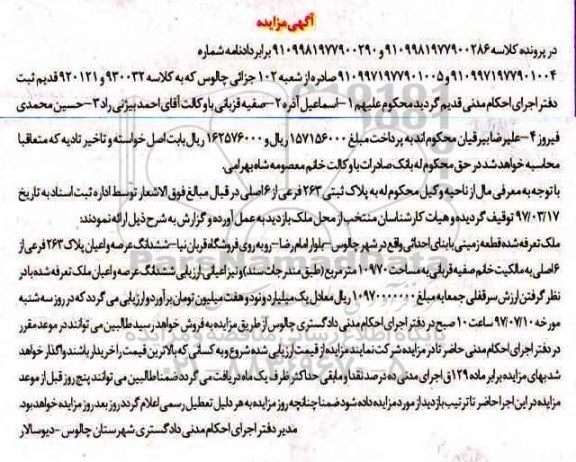 آگهی مزایده
در پرونده کلاسه ۹۱۰۹۹۸۱۹۷۷۹۰۰۲۸۶ و ۹۱۰۹۹۸۱۹۷۷۹۰۰۲۹۰ برابر دادنامه شماره
۹۱۰۹۹۷۱۹۷۷۹۰۱۰۰۴ و ۹۱۰۹۹۷۱۹۷۷۹۰۱۰۰۵ صادره از شعبه ۱۰۲ جزائی چالوس که به کلاسه ۹۳۰۰۳۲ و ۹۲۰۱۲۱ قدیم ثبت
دفتر اجرای احکام مدنی قدیم گردید محکوم علیهم ۱- اسماعیل آذر ۲- صفیه قربانی با وکالت آقای احمد بیژنی راد ۳- حسین محمدی
فیروز ۴- علیرضا بیرقیان محکوم اند به پرداخت مبلغ ۱۵۷۱۵۶۰۰۰ ریال و ۱۶۲۵۷۶۰۰۰ ریال بابت اصل خواسته و تاخیر تادیه که متعاقبا
محاسبه خواهد شد در حق محکوم له بانک صادرات با وکالت خانم معصومه شاه بهرامی.
با توجه به معرفی مال از ناحیه وکیل محکوم له به پلاک ثبتی ۲۶۳ فرعی از ۶ اصلی در قبال مبالغ فوق الاشعار توسط اداره ثبت اسناد به تاریخ
۹۷/۰۳/۱۷ توقیف گردیده و هیات کارشناسان منتخب از محل ملک بازدید به عمل آورده و گزارش به شرح ذیل ارائه نمودند:
ملک تعرفه شده قطعه زمینی با بنای احداثی واقع در شهر چالوس- بلوار امام رضا- روبه روی فروشگاه قربان نیا- ششدانگ عرصه و اعیان پلاک ۲۶۳ فرعی از
۶ اصلی به مالکیت خانم صفیه قربانی به مساحت ۱۰۹۷۰ متر مربع (طبق مندرجات سند) و نیز اعیانی ارزیابی ششدانگ عرصه و اعیان ملک تعرفه شده با در
نظر گرفتن ارزش سرقفلی جمعا به مبلغ ۱۰۹۷۰۰۰۰۰۰۰ ریال معادل یک میلیارد و نود و هفت میلیون تومان برآورد و ارزیابی می گردد که در روز سه شنبه
مورخه ۹۷/۰۷/۱۰ ساعت ۱۰ صبح در دفتر اجرای احکام مدنی دادگستری چالوس از طریق مزایده به فروش خواهد رسید طالبین می توانند در موعد مقرر
در دفتر اجرای احکام مدنی حاضر تا در مزایده شرکت نمایند مزایده از قیمت ارزیابی شده شروع و به کسانی که بالاترین قیمت را خریدار باشند واگذار خواهد
شد بهای مزایده برابر ماده ۱۲۹ ق اجرای مدنی ده درصد نقدا و مابقی حداکثر ظرف یک ماه دریافت می گردد ضمنا طالبین می توانند پنج روز قبل از موعد
مزایده در این اجرا حاضر تا ترتیب بازدید از مورد مزایده داده شود ضمنا چنانچه روز مزایده به هر دلیل تعطیل رسمی اعلام گردد روز بعد روز مزایده خواهد بود.
مدیر دفتر اجرای احکام مدنی دادگستری شهرستان چالوس - دیوسالار